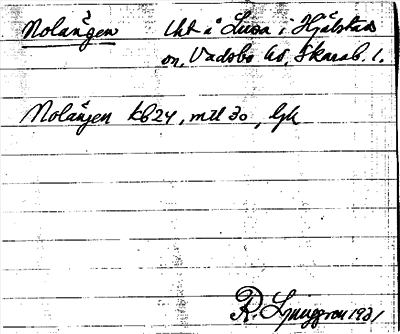 Nolängen Uht å Lusa i Hjälstad
sn, Vadsbo hd, Skarab. l.
Nolängen kb 24, mtl 30, ljk
R. Ljunggren 1931